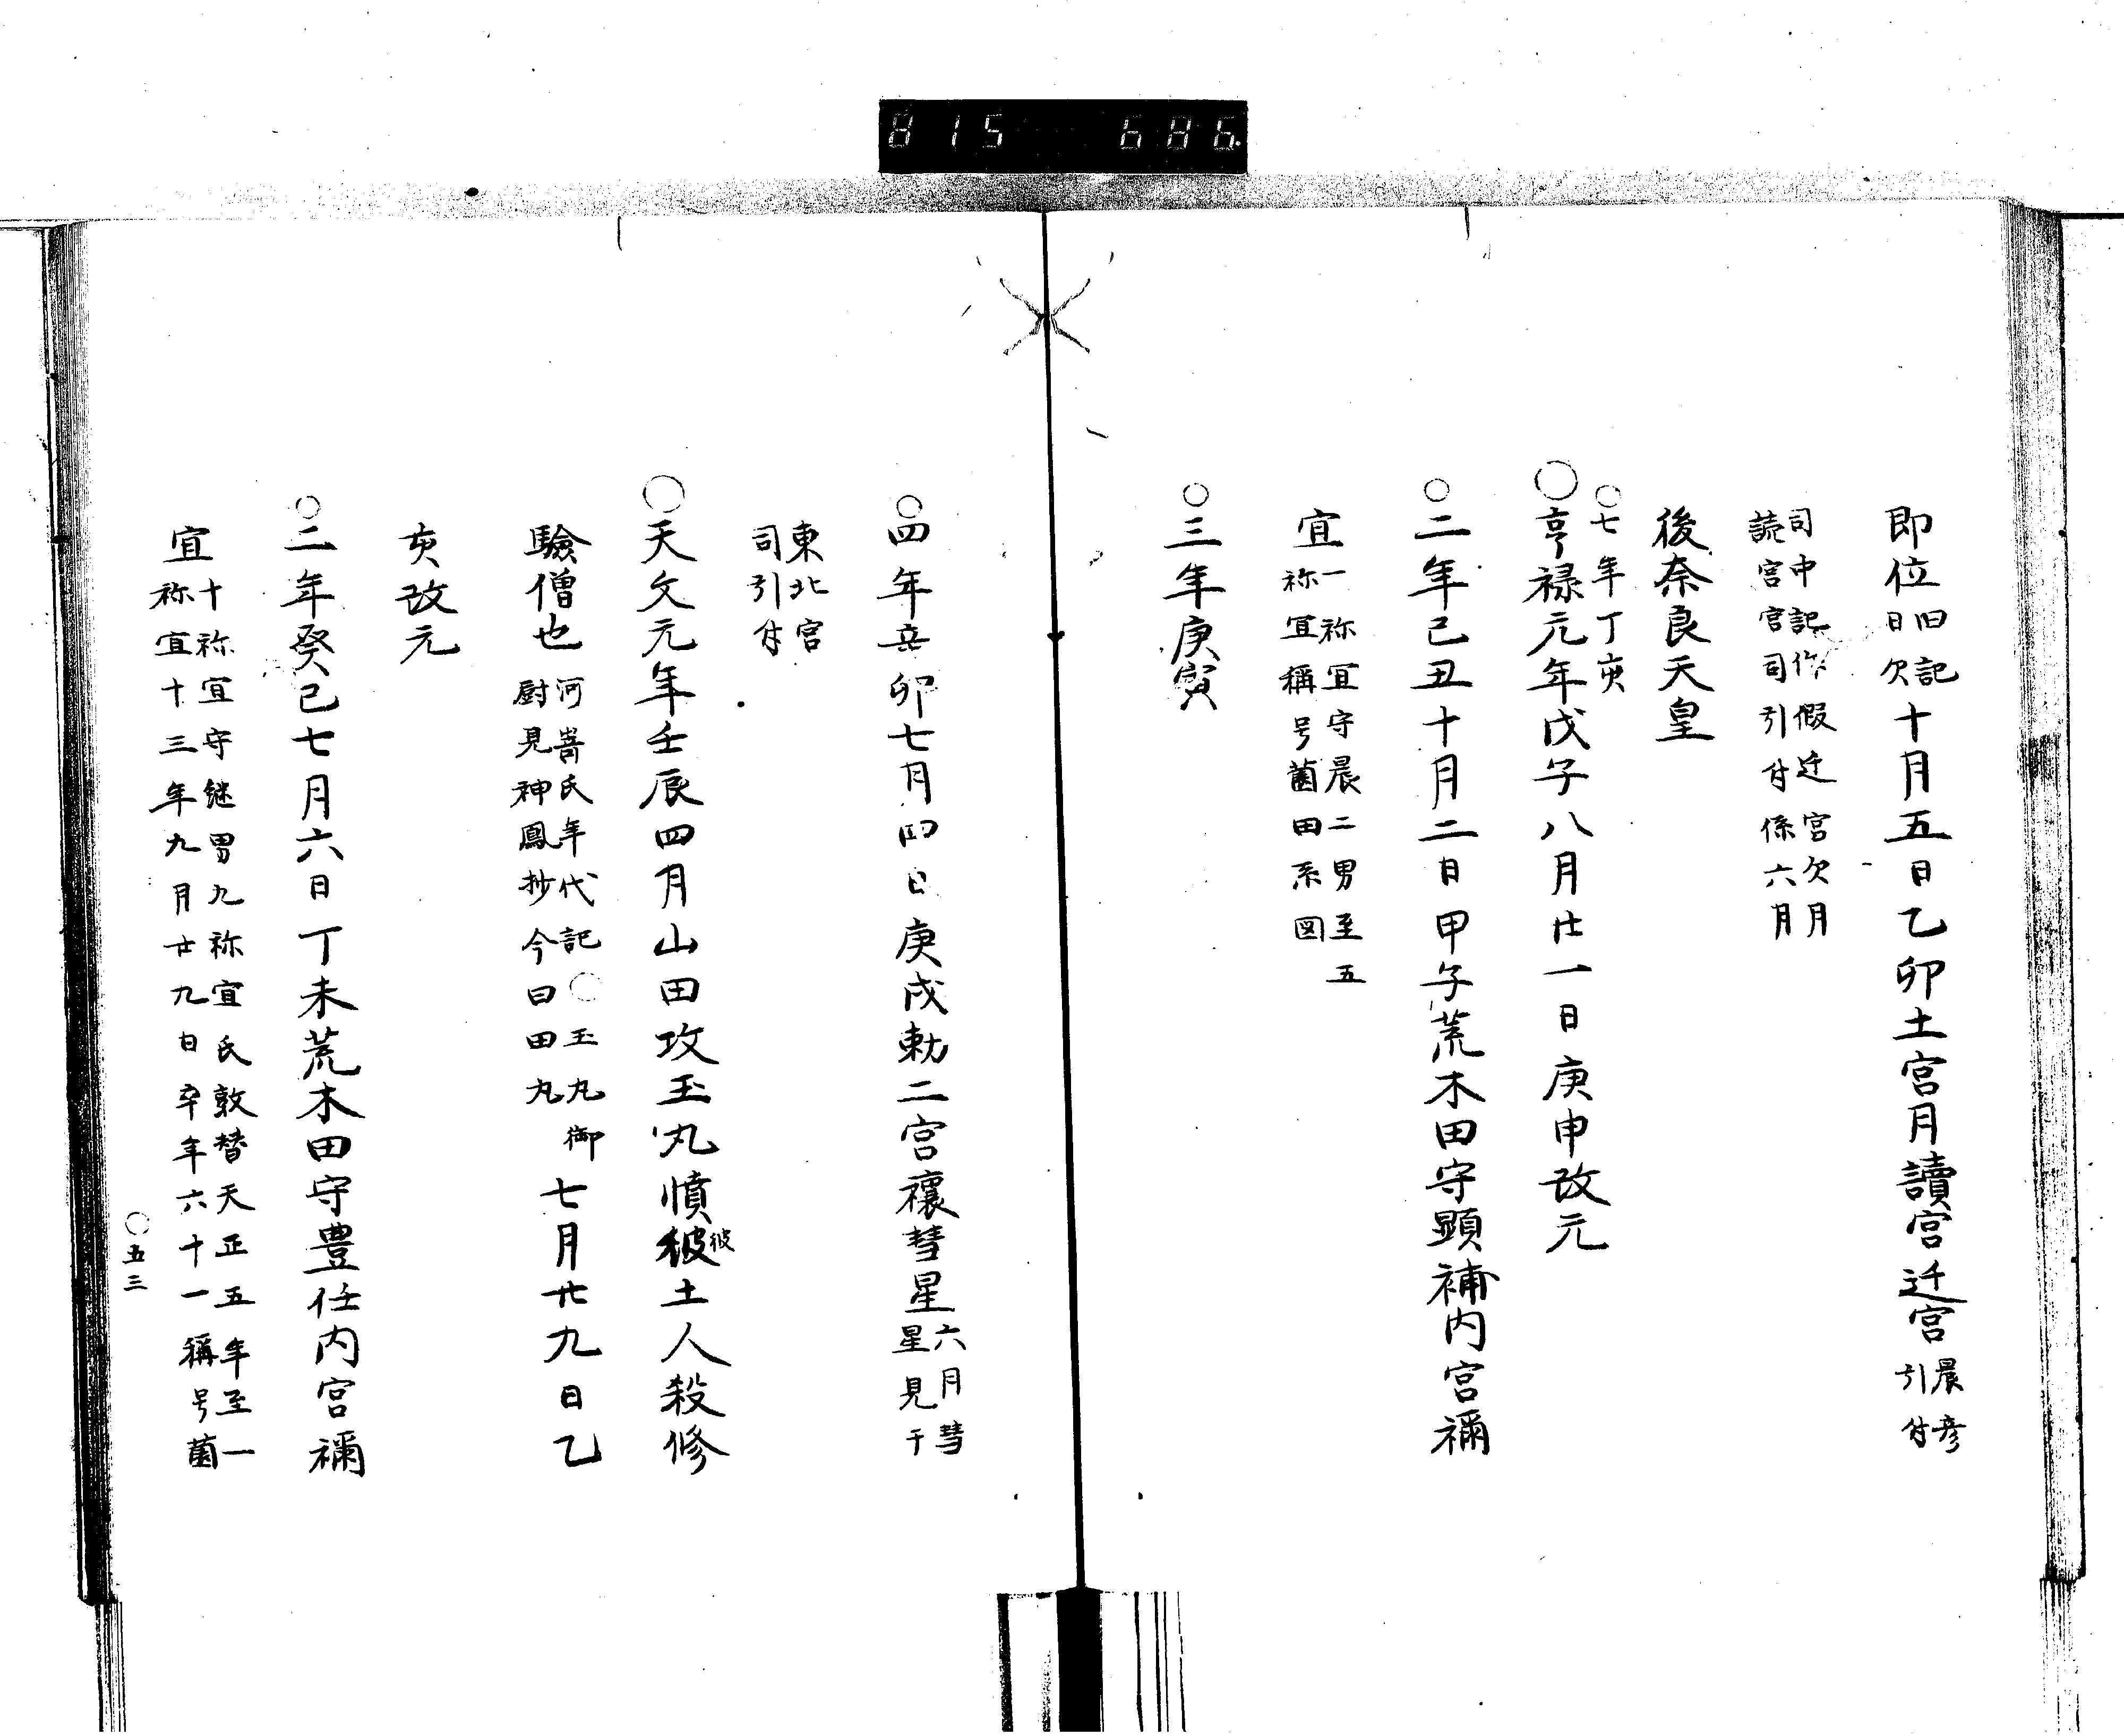 815 686
即位旧記日欠十月五日乙卯土宮月讀宮迁宮晨彦引付
司中記作假迁宮欠月
読宮宮司引付係六月
後奈良天皇
○七年丁亥
○享禄元年戊子八月廿一日庚申改元
○二年己丑十月二日甲子荒木田守顕補内宮禰
宜一祢宜守晨二男至五祢宜稱号薗田系図
○三年庚寅
○四年辛卯七月四日庚戌勅二宮禳彗星六月彗星見于
東北宮司引付
○天文元年壬辰四月山田攻玉丸憤彼彼土人殺修
驗僧也河嵜氏年代記○玉丸御厨見神鳳抄今曰田丸七月廿九日乙
亥改元
○二年癸已七月六日丁未荒木田守豊任内宮禰
宜十祢宜守継男九祢宜氏敦替天正五年至一祢宜十三年九月廿九日卒年六十一稱号薗
○五三